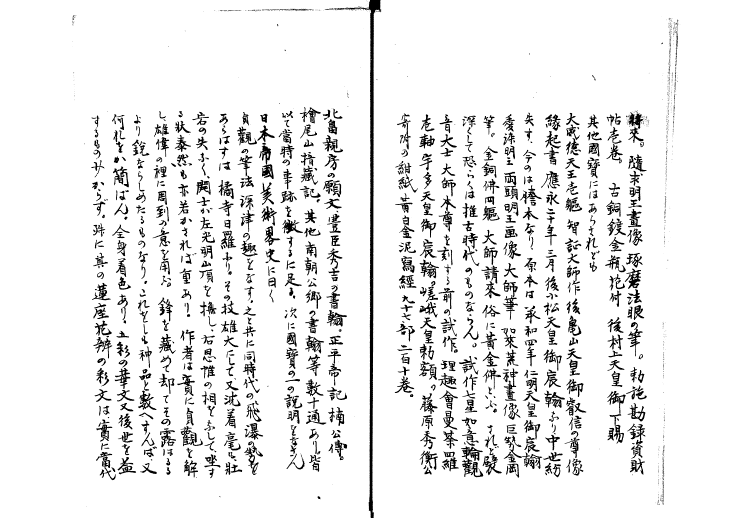 將來。隨求明王畫像 琢磨法眼の筆。勅施勘録資財
帖壱卷、古銅鍍金瓶花付 後村上天皇御下賜
其他國寶にはあらざれども
大威德天王壱軀 智証大師作 後亀山天皇御叡信ノ尊像
緣起書 應永二十年三月後小松天皇御宸翰なり中世紛
失す、今のは橹本なり。原本は 承和四年仁明天皇御宸翰
愛染明王 両頭明王画像 大師筆 如来荒神畫像 巨勢金岡
筆。金銅佛四軀 大師請來 俗に黄金佛と云ふ されど
深くして恐らくは推古時代のものならん。試作七星如意輪觀
音大士 大師本尊を刻する前の試作。理趣會曼荼羅
壱軸 宇多天皇御宸翰。嵯峨天皇勅額。藤原秀衡公
寄附の紺紙黄白金泥寫經九十七部二百十卷。
北畠親房の願文 豊臣秀吉の書翰。正平帝記 楠公傳。
檜尾山揹藏記。其他 南朝公卿の書翰等數十通あり皆
以て當時の事跡を徴するに足る。次に國寶の一の説明を
日本帝國美術畧史に曰く
貞觀の筆法 深津の趣となす。之と共に同時代の飛瀑の勢を
あらはすは 橘寺日羅なり。その技雄大にして又沈着 毫も壮
若の失なく、關士が左光明山頂を擁し右思惟の相をなして坐す
る状泰然も亦若かざれば重あり。作者は實に貞觀を解
し雄偉の裡に周到の意を用ふ。鋒を藏めて却てその露はるる
より鋭ならしめたるものなり。これをしも神品と數へずんば、又
何れをか簡ばん。全身着色あり。五彩の華文又後世を益
するもの少からず。殊に其の蓮座花瓣の彩文は實に當代